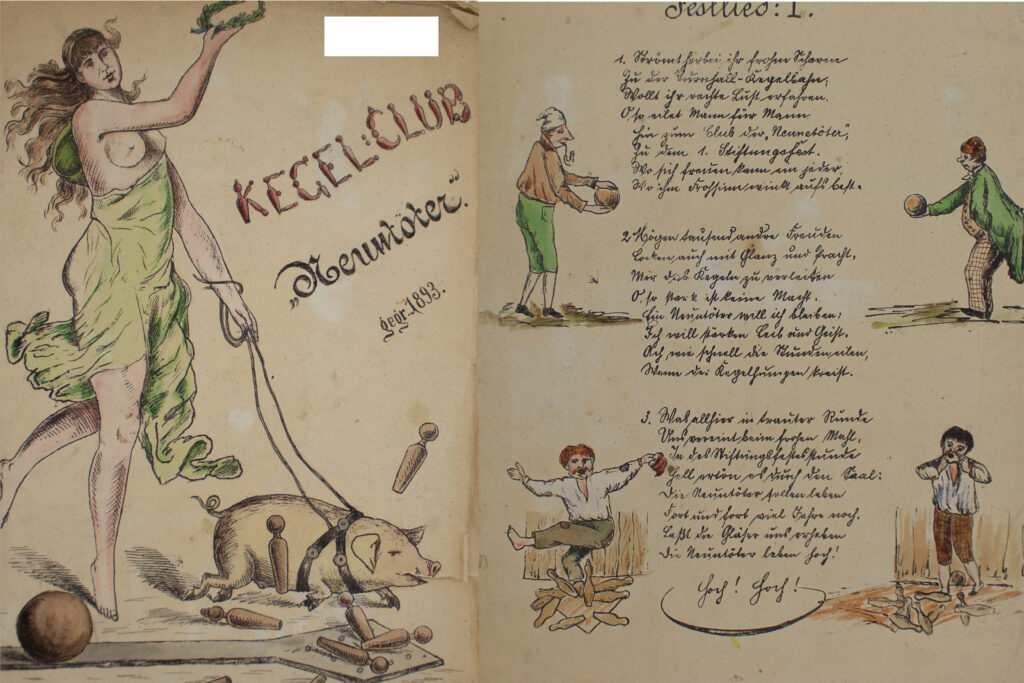 KEGEL-CLUB
„Neuntöter".
gegr. 1893.
Festlied: I.
1. Strömt herbei, ihr frohen Scharen
Zu der Turnhall-Kegelbahn,
Wollt ihr rechte Lust erfahren.
O so eilet Mann für Mann
Hin zum Club der „Neuntöter",
Zu dem 1. Stiftungsfest.
Wo sich freuen kann ein jeder,
Wo ihm Frohsinn winkt aufs best.
2. Mögen tausend andre Freuden
Locken auch mit Glanz und Pracht,
Mir das Kegeln zu verleiten
O so stark ist keine Macht.
Ein Neuntöter will ich bleiben;
Ich will stärken Leib und Geist.
Ach wie schnell die Stunden eilen,
Wenn der Kegelhumpen kreist.
3. Was allhier in trauter Runde
Uns vereint beim frohen Mahl,
In des Stiftungsfestes Stunde
Hell ertön es durch den Saal:
Die Neuntöter sollen leben
Fort und fort viel Jahre noch.
Laßt die Gläser uns erheben
Die Neuntöter leben hoch!
Hoch! Hoch!